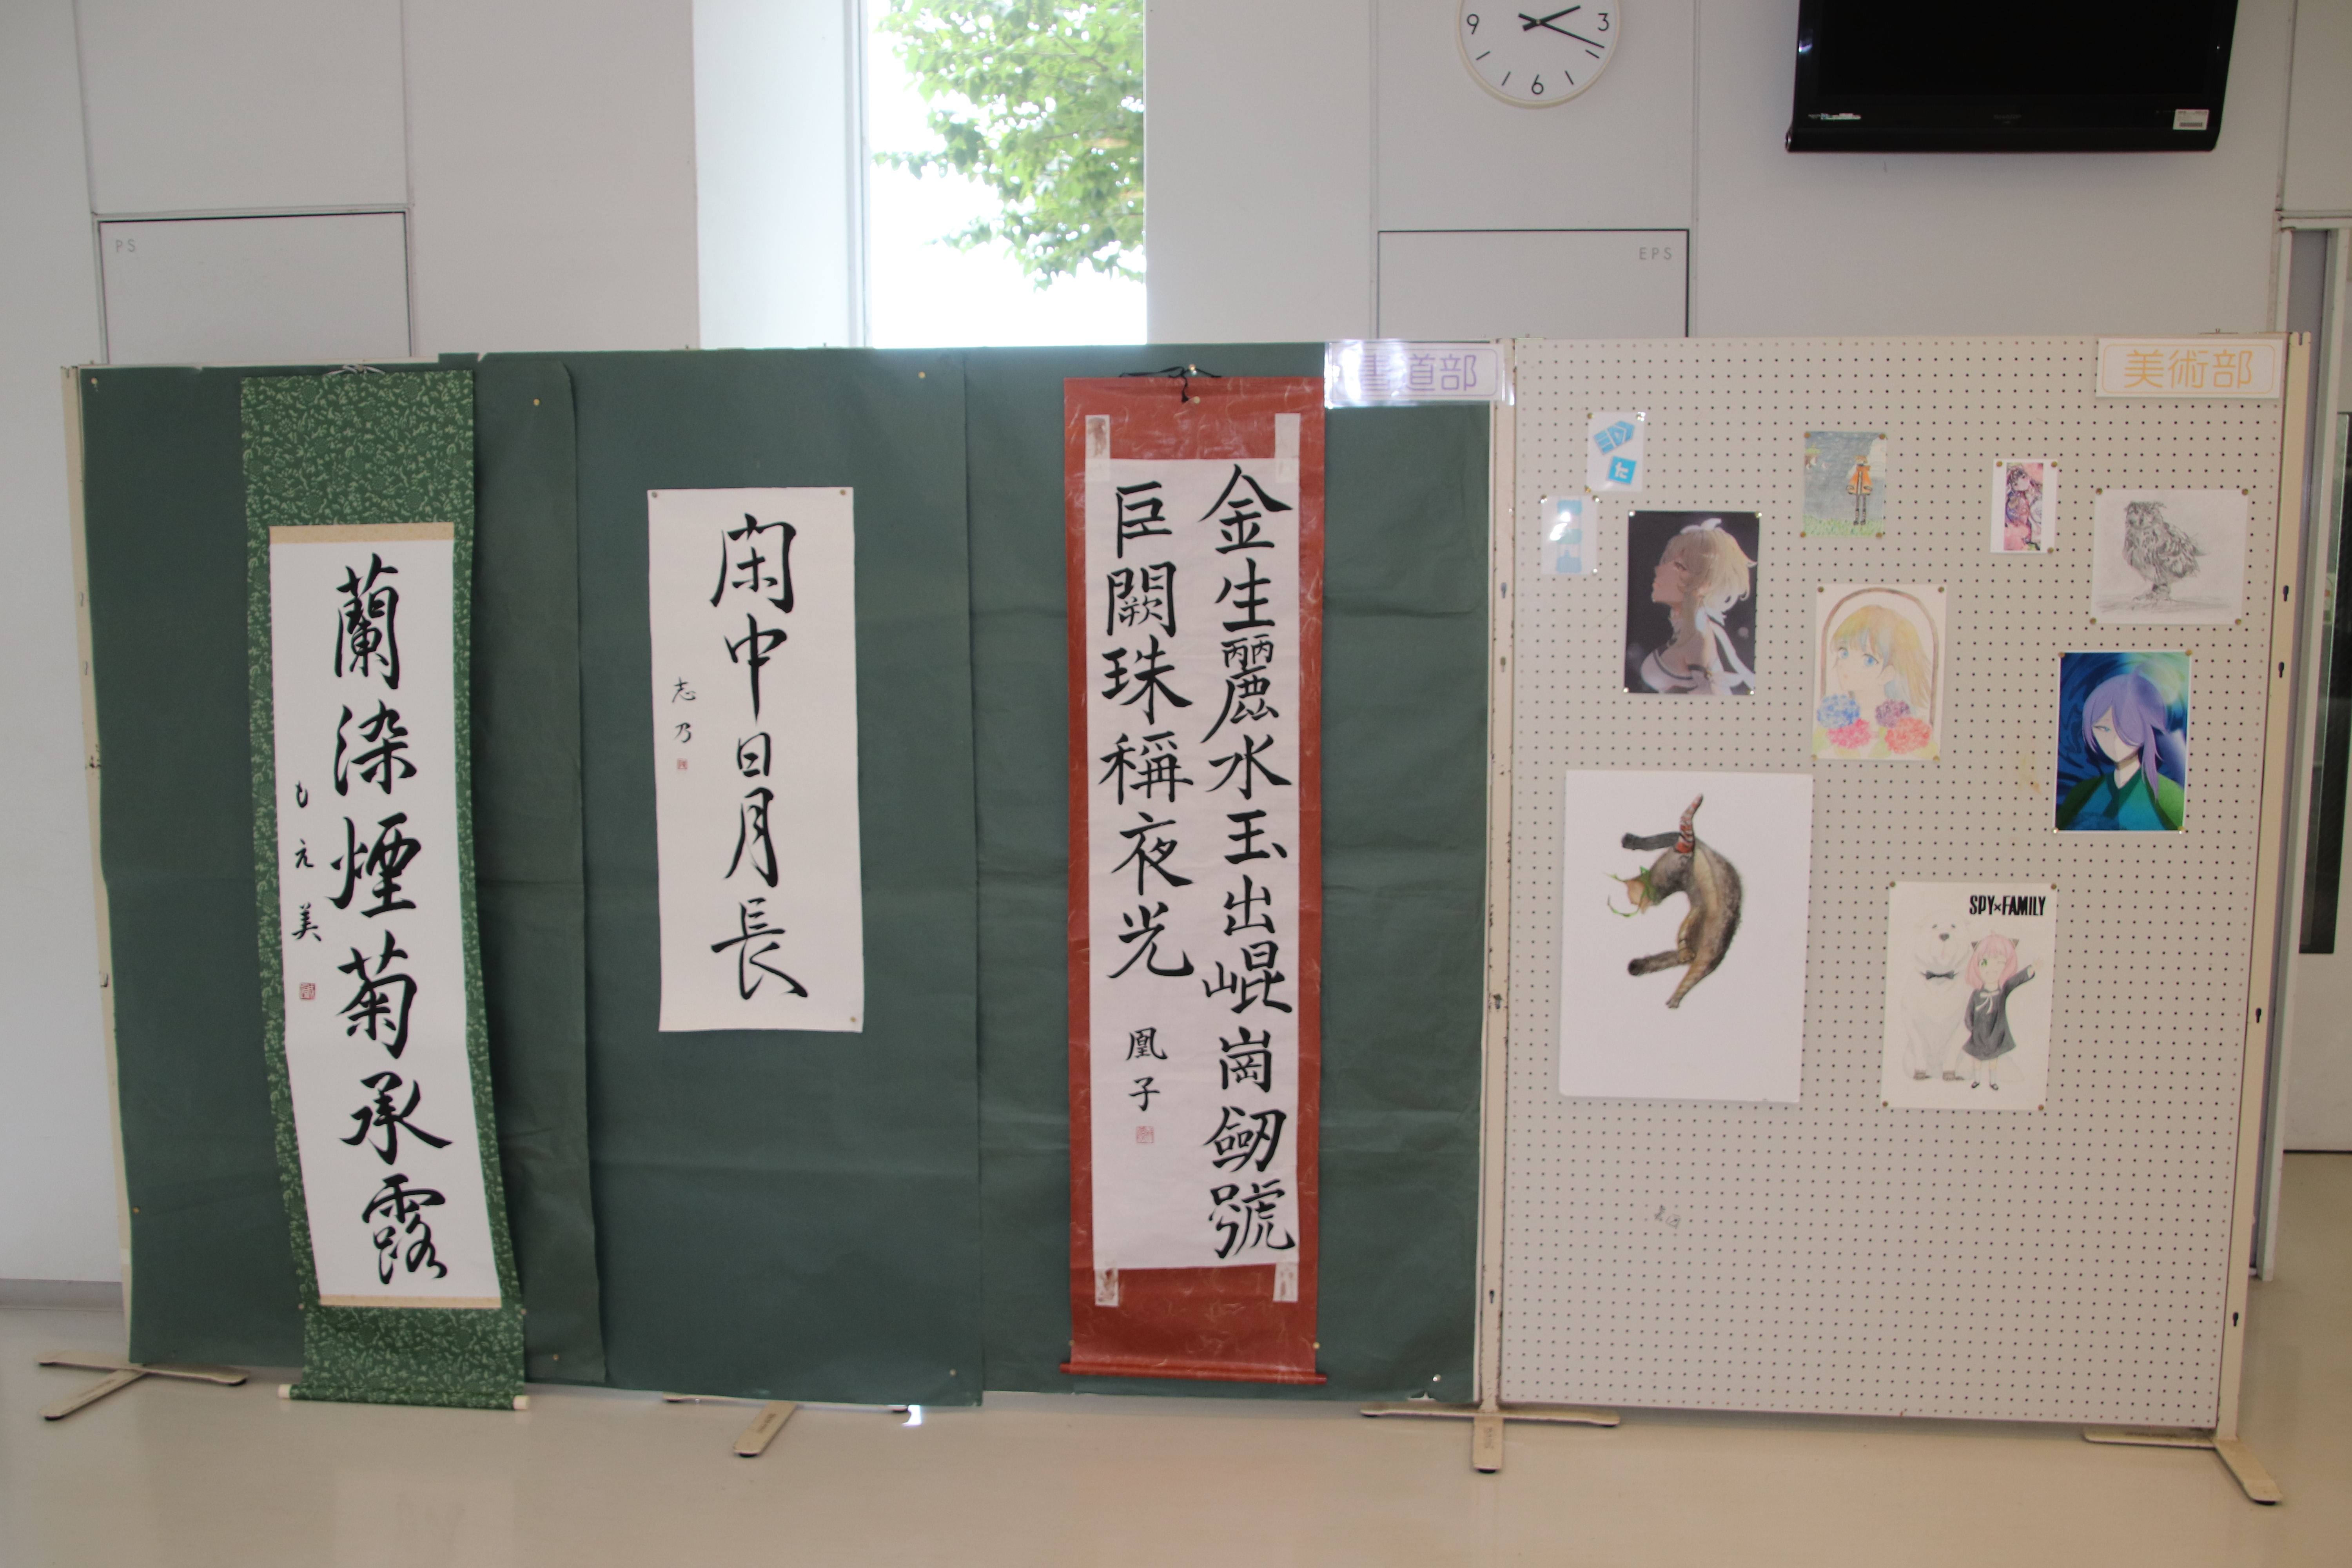 9
3
6
PS
EPS
書道部
美術部
蘭染煙菊承露
もえ美
閑中日月長
志乃
金生麗水玉出崐崗劒號
巨闕珠稱夜光
凰子
SPY×FAMILY